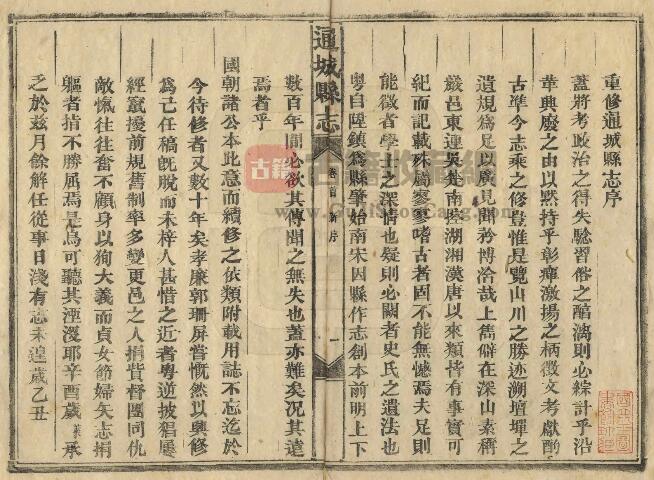 重修通城縣志序
蓋將考政治之得失驗習俗之醇漓則必綜計乎沿
革興廢之由以默持乎彰癉激揚之柄徵文考獻酌
古準今志乘之修豈惟是覽山川之勝迹溯壇墠之
遺規為足以廣見聞矜博洽哉上雋僻在深山素稱
嚴邑東連吳楚南控湖湘漢唐以來類皆有事實可
紀而記載殊屬寥寥嗜古者固不能無憾焉夫足則
能徵者學士之深情也疑則必闕者史氏之遺法也
粵自陞鎮為縣肇始南宋因縣作志創本前明上下
通城縣志
卷首
新序
一
數百年間必欲其傳聞之無失也蓋亦難矣況其遠
焉者乎
國朝諸公本此意而續修之依類附載用誌不忘迄於
今待修者又數十年矣孝廉郭珊屏嘗慨然以興修
為己任稿旣脫而未梓人甚惜之近者粵逆披猖屢
經竄擾前規舊制率多變更邑之人捐貲督團同仇
敵愾往往奮不顧身以狥大義而貞女節婦矢志捐
軀者指不勝屈焉是烏可聽其湮沒耶辛酉歲 承
乏於茲月餘解任從事日淺有志未遑歲乙丑
古籍